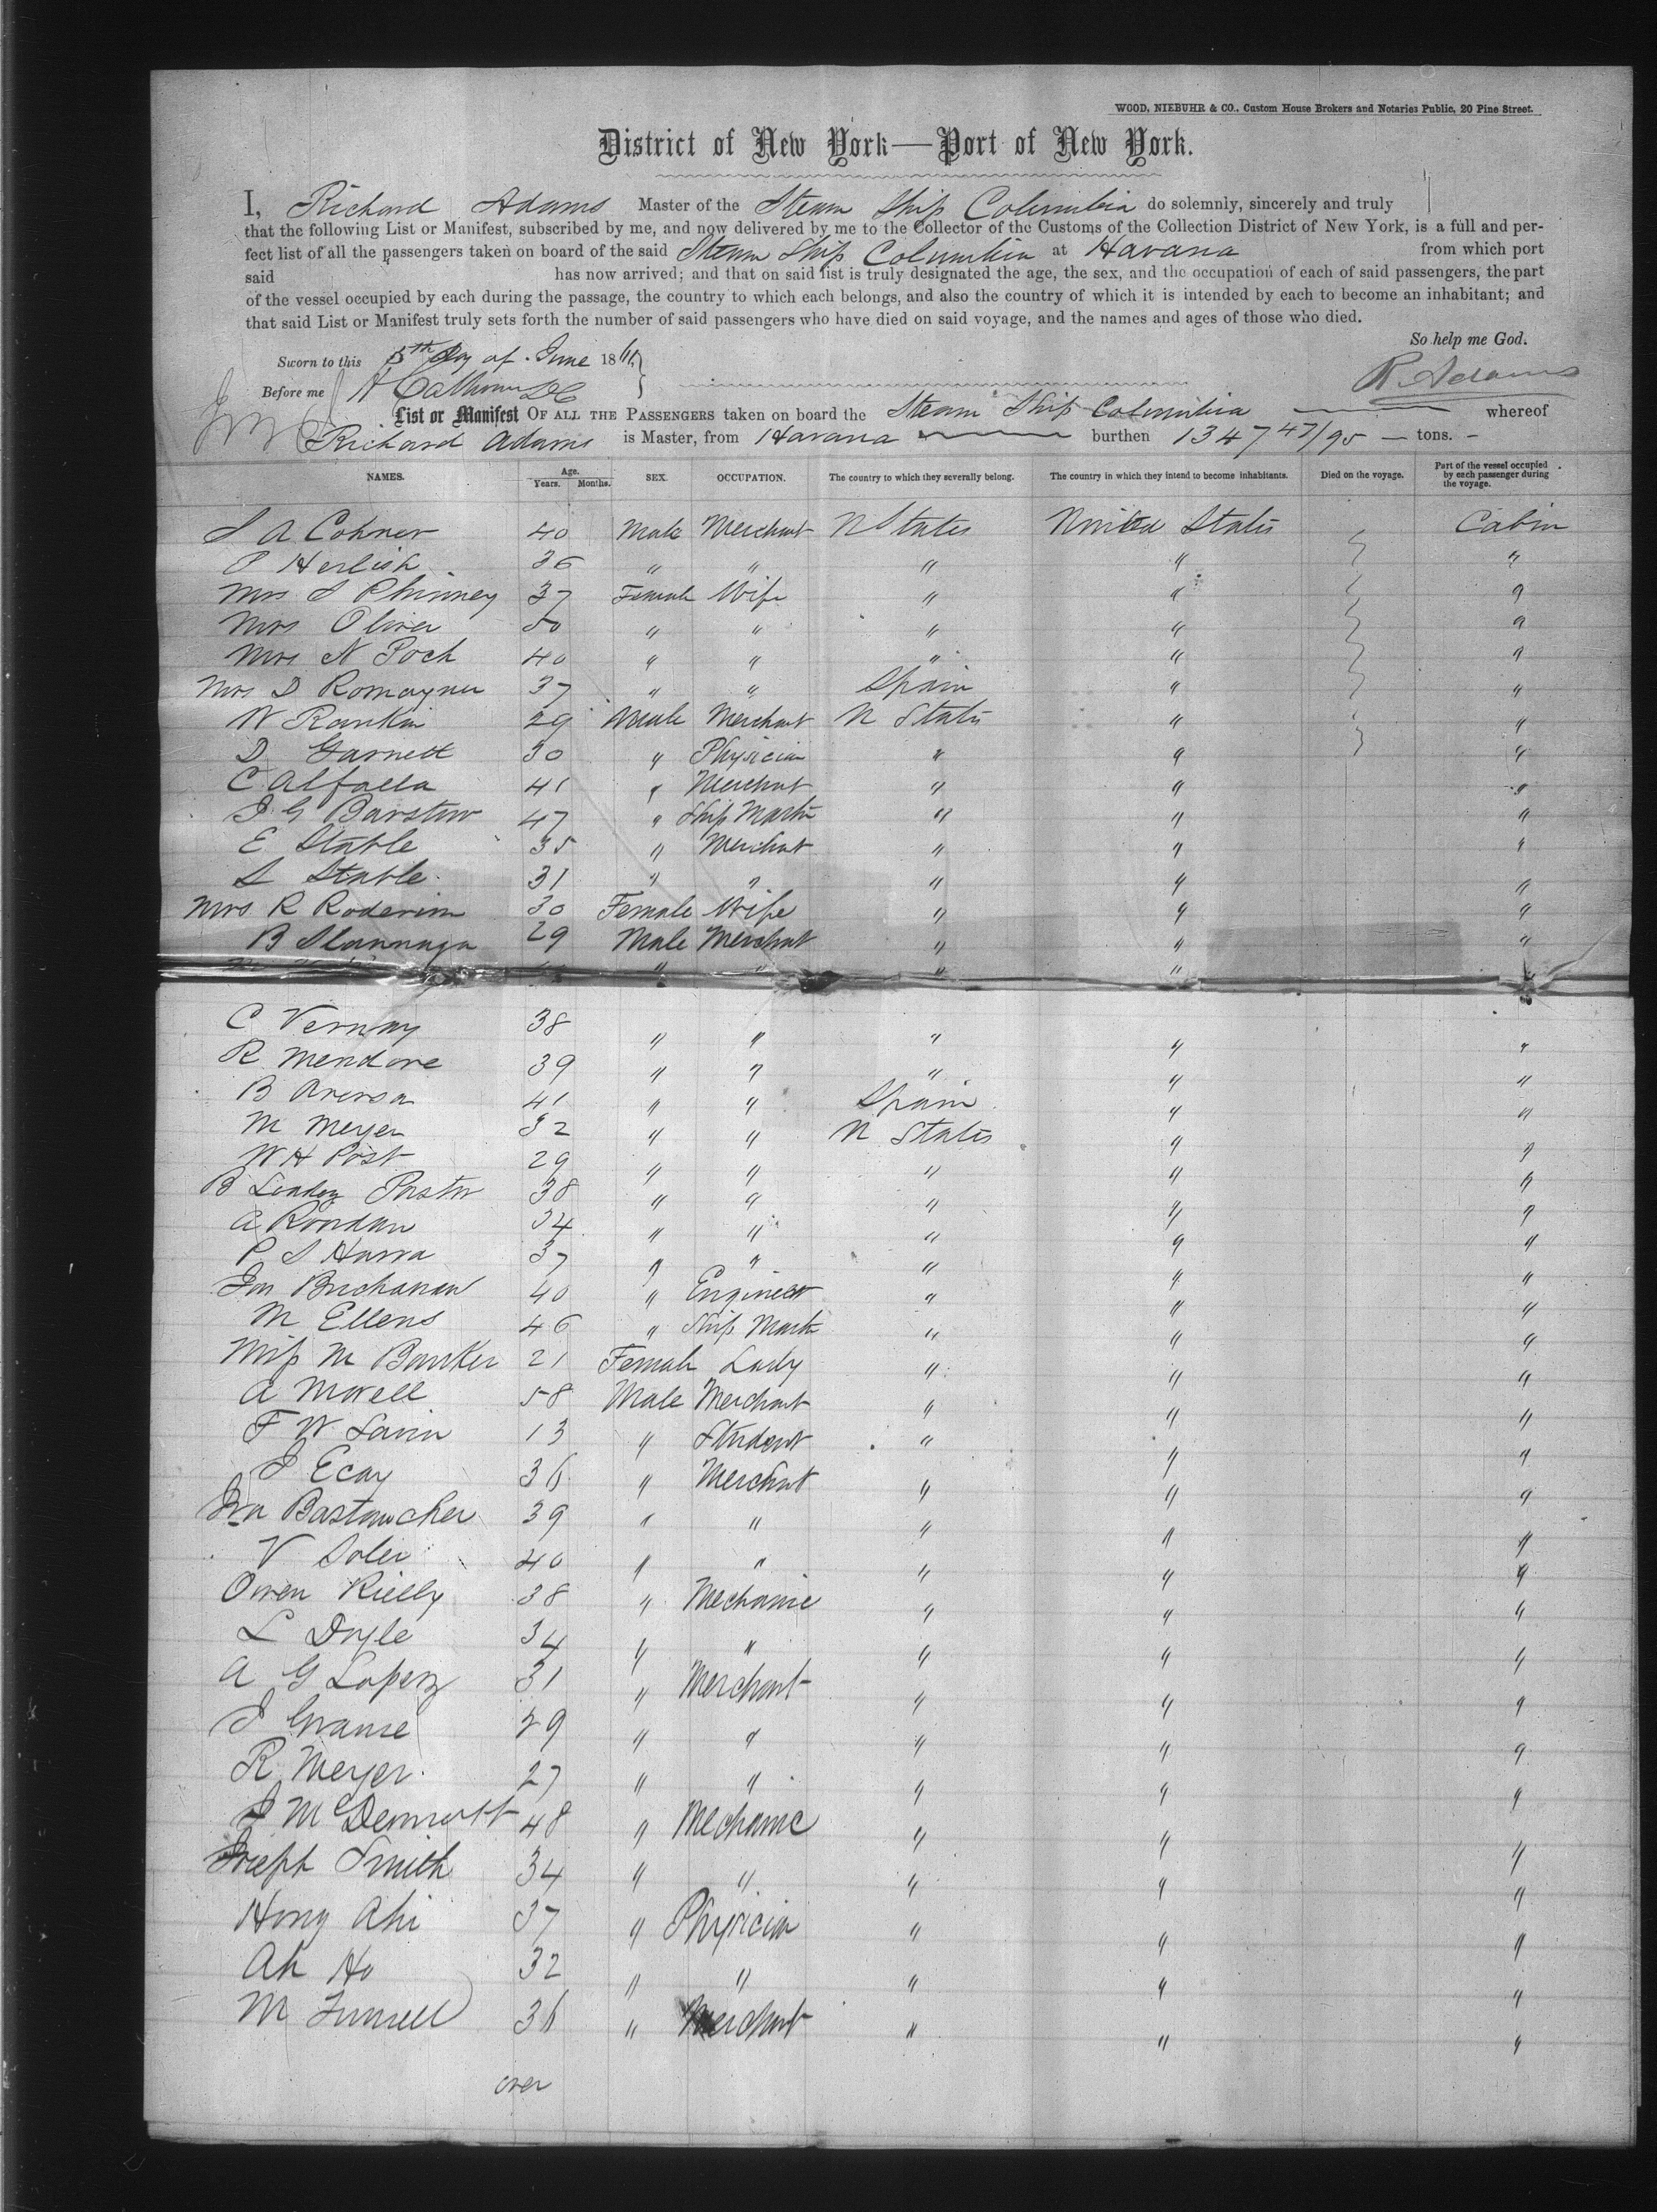 WOOD, NIEBUHR & CO., Custom House Brokers and Notaries Public, 20 Pine Street.
District of New York—Port of New York.
I, Richard Adams Master of the Steam Ship Columbia do solemnly, sincerely and truly
that the following List or Manifest, subscribed by me, and now delivered by me to the Collector of the Customs of the Collection District of New York, is a full and per-
fect list of all the passengers taken on board of the said Steam Ship Columbia at Havana from which port
said has now arrived; and that on said list is truly designated the age, the sex, and the occupation of each of said passengers, the part
of the vessel occupied by each during the passage, the country to which each belongs, and also the country of which it is intended by each to become an inhabitant; and
that said List or Manifest truly sets forth the number of said passengers who have died on said voyage, and the names and ages of those who died.
So help me God.
Sworn to this 5th Day of June 186
R Adams
Before me
List or Manifest OF ALL THE PASSENGERS taken on board the Steam Ship Columbia whereof
Richard Adams is Master, from Havana burthen 1347 47/95 tons.
NAMES. Age. Years. Months. SEX. OCCUPATION. The country to which they severally belong. The country in which they intend to become inhabitants. Died on the voyage. Part of the vessel occupied by each passenger during the voyage.
S A Cohner 40 Male Merchant U States United States Cabin
P Herlish 36 " " " " "
Mrs S Phinney 37 Female Wife " " "
Mrs Oliver 50 " " " " "
Mrs N Poch 40 " " " " "
Mrs D Romayner 37 " " Spain " "
W Rankin 29 Male Merchant U States " "
D Garnett 30 " Physician " " "
C Alfalla 41 " Merchant " " "
J G Barstow 47 " Ship Mastr " " "
E Stable 35 " Merchant " " "
S Stable 31 " " " " "
Mrs R 30 Female Wife " " "
B 29 Male Merchant " " "
" " " " "
C Vernay 38 " " " " "
R Mendore 39 " " " " "
B 41 " " Spain " "
M Meyer 32 " " U States " "
W H Post 29 " " " " "
B Pastor 38 " " " " "
A Rondan 34 " " " " "
P S Harra 37 " " " " "
Jas Buchanan 40 " Engineer " " "
M Ellens 46 " Ship Mastr " " "
Miss M Banker 21 Female Lady " " "
A Morell 58 Male Merchant " " "
F W Lavin 13 " Student " " "
J Ecay 36 " Merchant " " "
Bastancher 39 " " " " "
V Soler 40 " " " " "
Owen Rielly 38 " Mechanic " " "
L Doyle 34 " " " " "
A G Lopez 31 " Merchant " " "
J 29 " " " " "
R Meyer 27 " " " " "
J McDermott 48 " Mechanic " " "
Joseph Smith 34 " " " " "
Hong Ahi 37 " Physician " " "
Ah Ho 32 " " " " "
M 36 " Merchant " " "
over